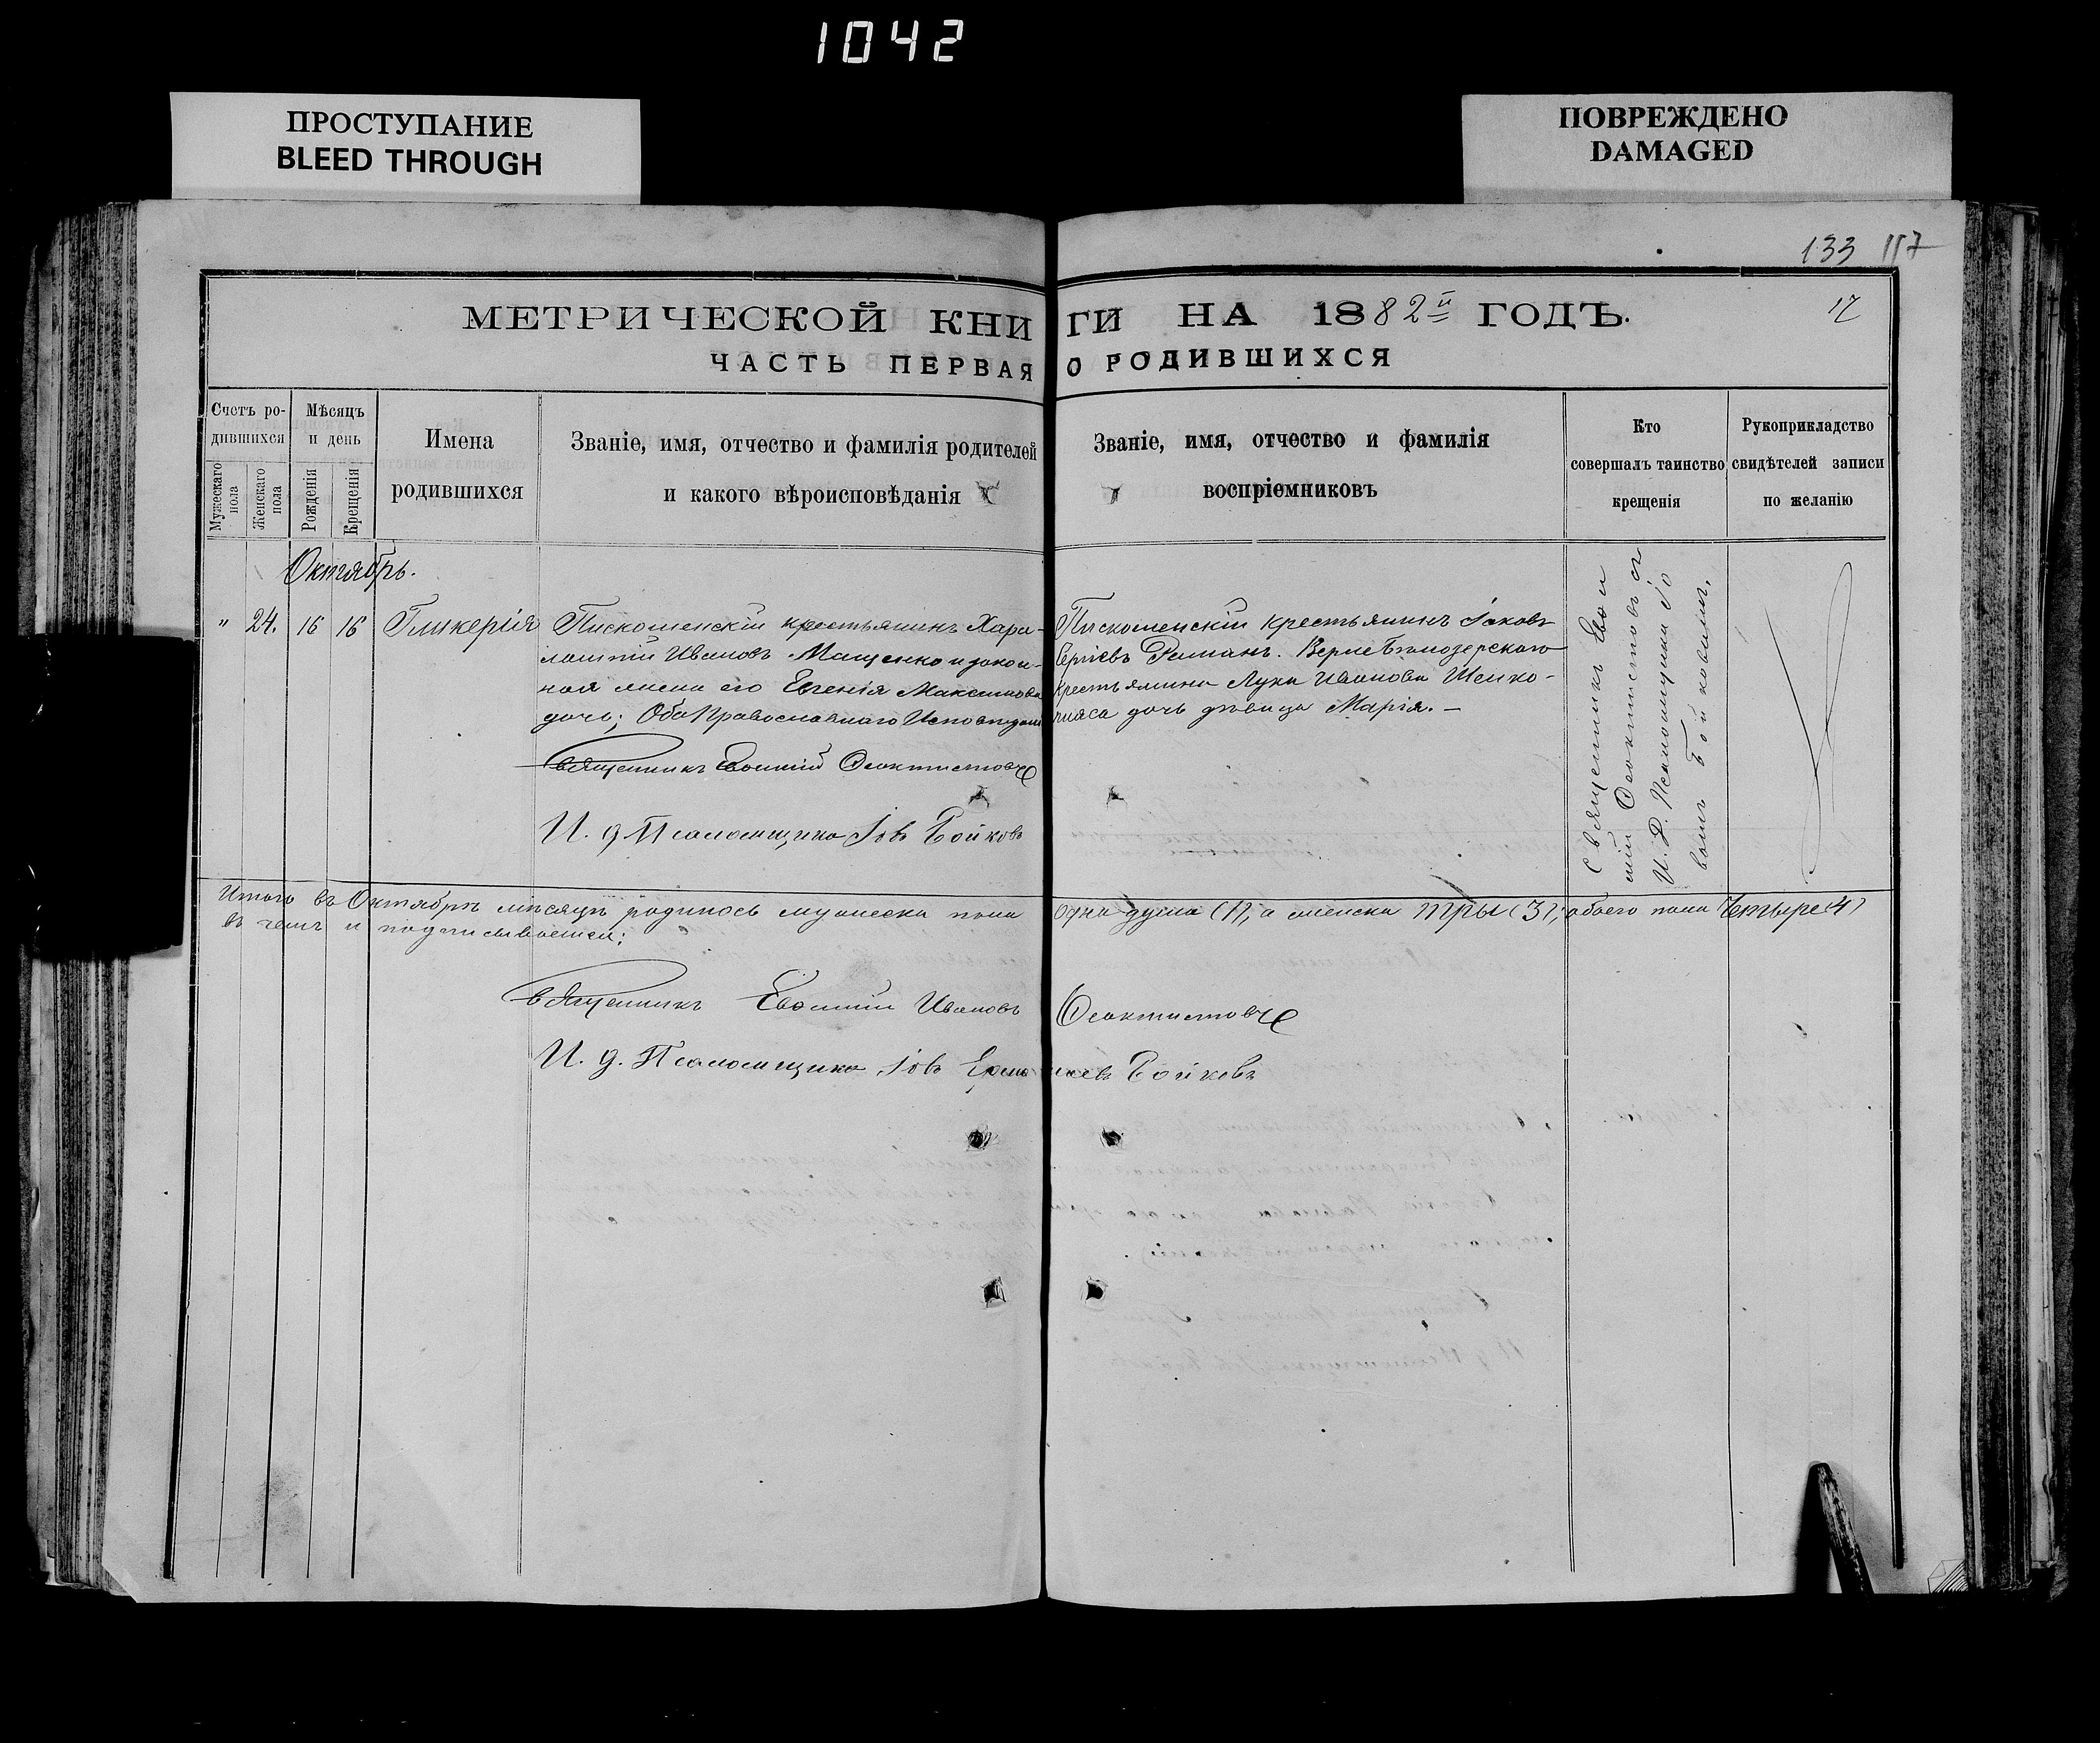 1042
ПРОСТУПАНИЕ
BLEED THROUGH
ПОВРЕЖДЕНО
DAMAGED
133 117
МЕТРИЧЕСКОЙ КНИГИ НА 1882й ГОДЪ.
17
ЧАСТЬ ПЕРВАЯ О РОДИВШИХСЯ
Счетъ родившихся
Мужескаго пола
Женскаго пола
Мѣсяцъ и день
Рожденія
Крещенія
Имена
родившихся
Званіе, имя, отчество и фамилія родителей
и какого вѣроисповѣданія
Званіе, имя, отчество и фамилія
воспріемниковъ
Кто
совершалъ таинство
крещенія
Рукоприкладство
свидѣтелей записи
по желанію
Октябрь.
" 24. 16 16 Гликерія
Пискошенскій крестьянинъ Хара-
лампій Ивановъ Мащенко и закон-
ная жена его Евгенія Максимова
дочь; Оба Православнаго Исповѣдані
Священникъ Евфимій Ѳеоктистовъ
И. д. Псаломщика Іовъ Бойковъ
Пискошенскій крестьянинъ Іаковъ
Сергіевъ Романъ. Верне Бѣлозерскаго
крестьянина Луки Иванова
дочь дѣвица Марія. –
Священникъ Евѳи
мій Ѳеоктистовъ съ
И. Д. Псаломщика Іо
вомъ Бойковымъ.
Итого въ Октябрѣ мѣсяцѣ родилось мужеска пола одна душа (1), а женска тры (3), обоего пола Четыре (4)
въ чемъ и подписываемся;
Священникъ Евѳимій Ивановъ Ѳеоктистовъ
И. д. Псаломщика Іовъ Бойковъ